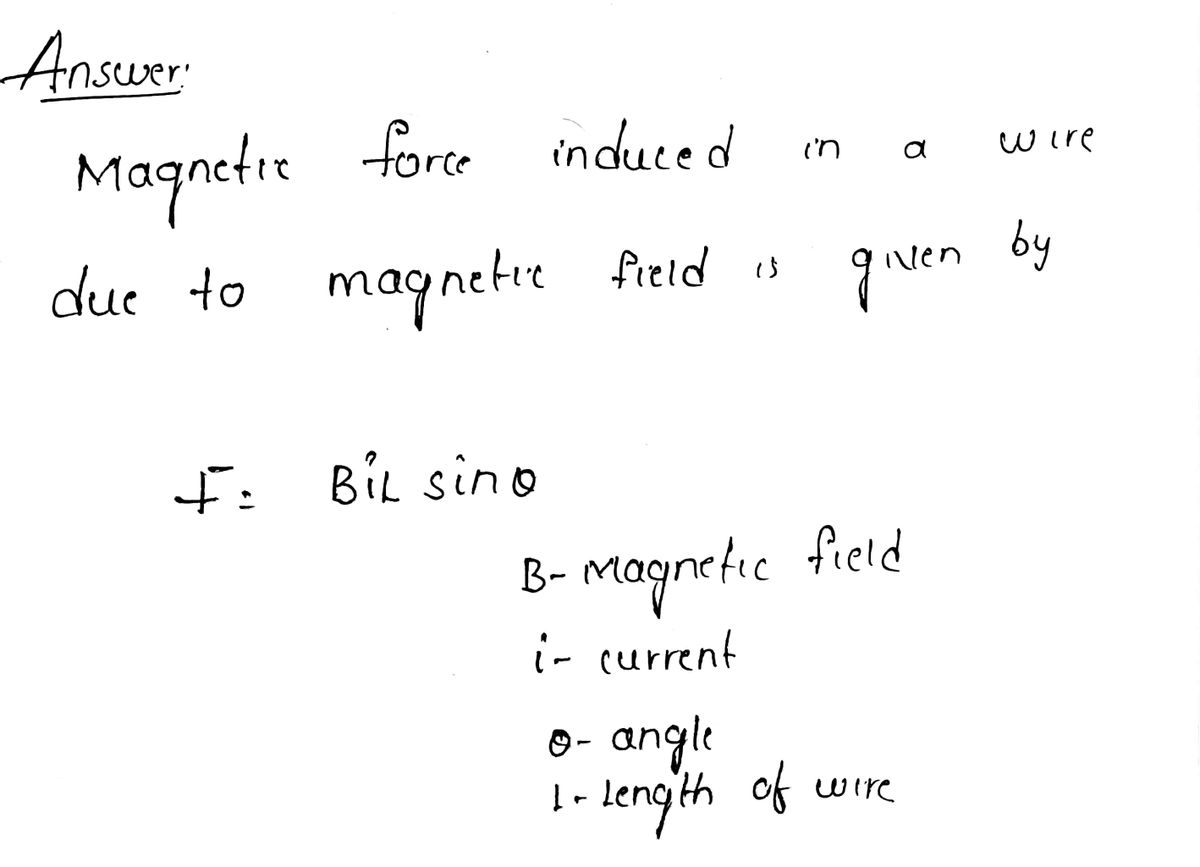 Answer:
Magnetic force induced in a wire
due to magnetic field is given by
F = BiL sinθ
B- Magnetic field
i- current
θ- angle
l- Length of wire